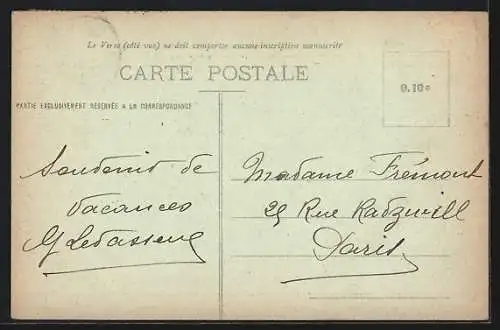 Le Verso (côté vue) ne doit comporter aucune inscription manuscrite
CARTE POSTALE
0.10c
PARTIE EXCLUSIVEMENT RÉSERVÉE A LA CORRESPONDANCE
Souvenir de
Vacances
Madame Frémont
25 Rue Radziwill
Paris